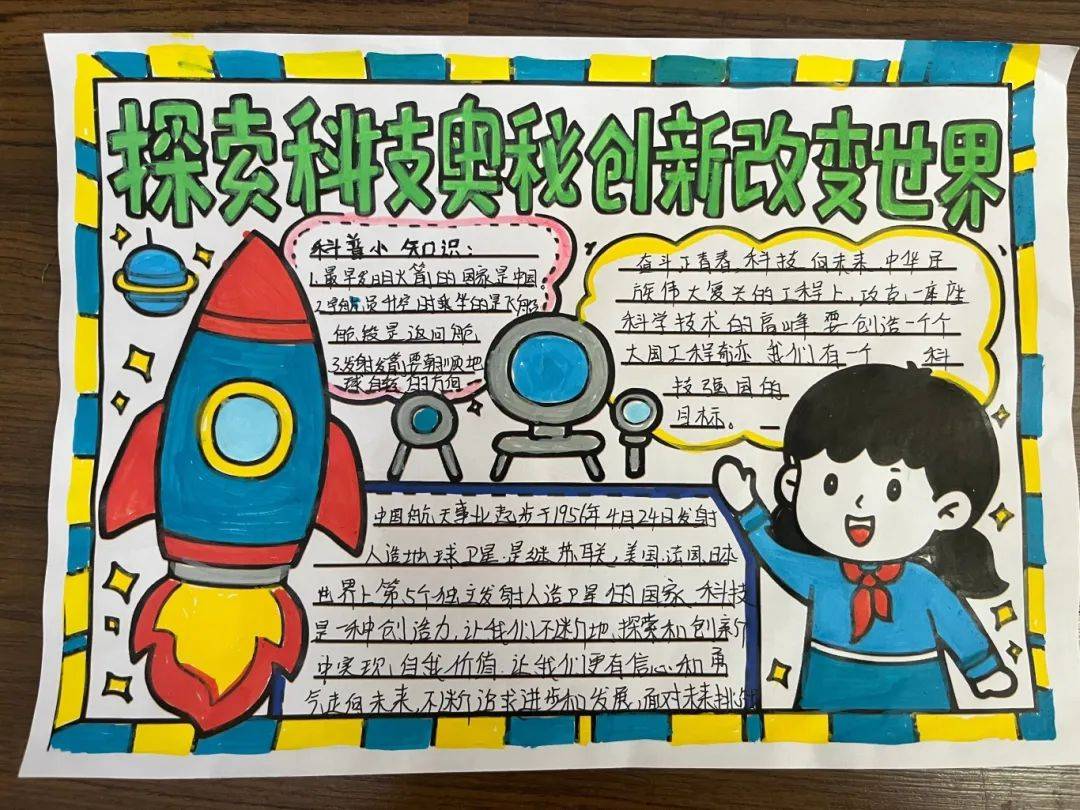 探索科技奥秘创新改变世界
科普小知识:
1.最早发明火箭的国家是中国。
2.宇航员升空时乘坐的是飞船
舱段是返回舱
3.发射发箭要朝顺地
球自转的方向
奋斗正青春,科技向未来,中华民
族伟大复兴的工程上,攻克一座座
科学技术的高峰要创造一个个
大国工程奇迹 我们有一个 科
技强国的
目标。
中国航天事业起步于1956年4月24日发射
人造地球卫星,是继苏联,美国,法国,日本
世界上第5个独立发射人造卫星的国家 科技
是一种创造力,让我们不断地探索和创新
中实现自我价值 让我们更有信心和勇
气走向未来,不断追求进步和发展,面对未来挑